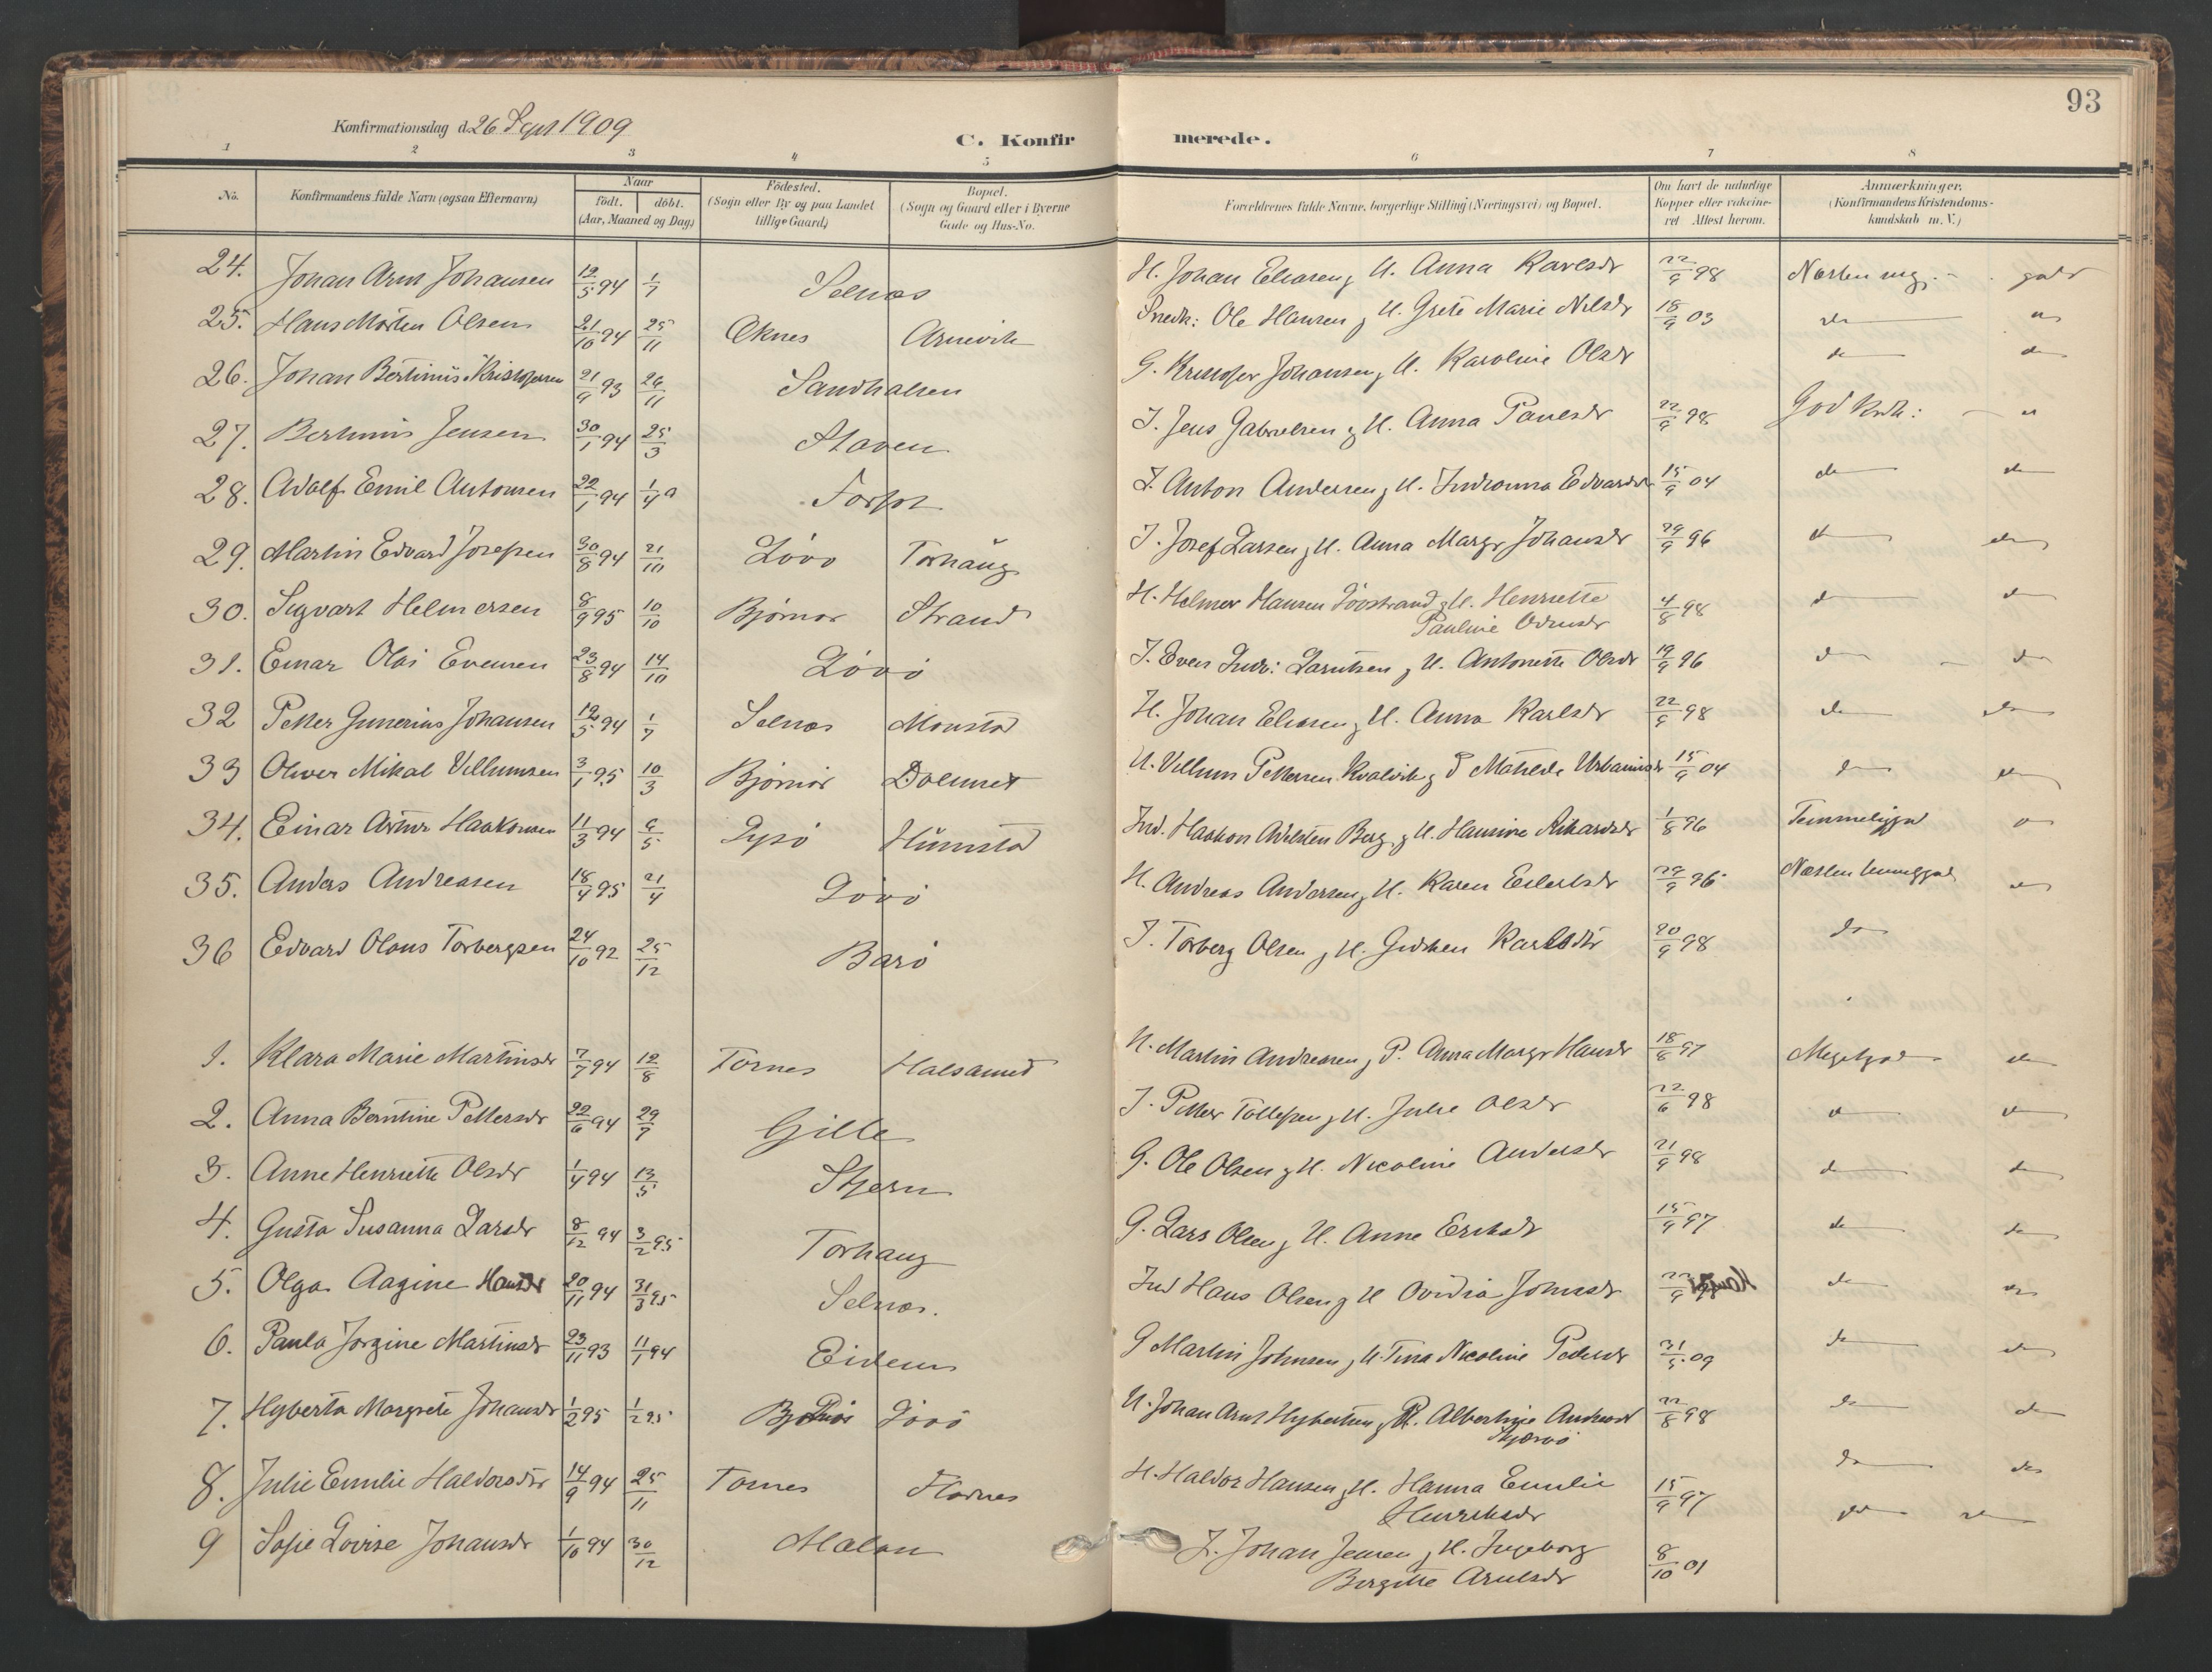 93
Konfirmationsdag d. 26 Sept 1909
C. Konfirmerede.
1 2 3 4 5 6 7 8
No. Konfirmandens fulde Navn (ogsaa Efternavn) Naar födt. döbt. (Aar, Maaned og Dag) Födested. (Sogn eller By og paa Landet tillige Gaard) Bopæl. (Sogn og Gaard eller i Byerne Gade og Hus-No. Forældrenes fulde Navne, borgerlige Stilling (Næringsvei) og Bopæl. Om havt de naturlige Kopper eller vakcineret Attest herom. Anmærkninger. (Konfirmandens Kristendomskundskab m. V.)
24. Johan Arnt Johansen 12/5 94 1/7 Selnæs H. Johan Eliasen, U. Anna Karlsdr 22/9 98 Næsten meg. godt
25. Hans Morten Olsen 21/10 94 25/11 Oknes Arnevik Snedk: Ole Hansen, U. Grete Marie Nilsdr 18/9 03 do do
26. Johan Bertinius Kristofersen 21/9 93 26/11 Sandhalsen G. Kristofer Johansen, U. Karoline Olsdr do do
27. Bertinius Jensen 30/1 94 25/3 Staven I. Jens Gabrielsen, U. Anna Paulsdr 22/9 98 God Kndk: do
28. Adolf Emil Antonsen 22/1 94 1/4 Torsox I. Anton Andersen, U. Indianna Edvardsdr 15/9 04 do do
29. Martin Edvard Josefsen 30/8 94 21/10 Lövö Torhaug I. Josef Larsen, U. Anna Margr Johansdr 29/9 96 do do
30. Sigvart Helmersen 8/9 95 10/10 Bjørnør Strand H. Helmer Hansen, U. Henriette
Pauline 4/8 98 do do
31. Einar Olai Evensen 23/8 94 14/10 Lövö I. Even Larsen, U. Antonette Olsdr 19/9 96 do do
32 Petter Gunerius Johansen 12/5 94 1/7 Selnæs Monstad H. Johan Eliasen, U. Anna Karlsdr 22/9 98 do do
33 Oliver Mikal Villumsen 3/1 95 10/3 Bjørnør Dolmset U. Villum Pettersen Kvalvik, P Matilde Urbanusdr 15/9 04 do do
34. Einar Artur Haakonsen 11/3 94 6/5 Lysö Hünnstad Ind. Haakon Berg, U. Hansine Rikardsdr 1/8 96 Temmelig god do
35. Anders Andreasen 18/4 95 21/4 Lövö H. Andreas Andersen, U. Karen Eilertsdr 29/9 96 Næsten temmelig god do
36 Edvard Olaus Torbergsen 24/10 92 25/12 Barö I. Torberg Olsen, U. Gurdken Karlsdtr 20/9 98 do
1. Klara Marie Martinsdr 7/7 94 12/8 Tornes Halsanned H. Martin Andreasen, P. Anna Margr Hansdr 18/8 97 Meget god do
2. Anna Berntine Pettersdr 22/6 94 29/7 Gille I. Petter Tollefsen, U. Julie Olsdr 22/6 98 do do
3. Anne Henriette Olsdr 1/4 94 13/5 Stjern G. Ole Olsen, U. Nicoline Andersdr 21/9 98 do do
4. Gusta Susanna Larsdr 8/12 94 3/2 95 Torhaug G. Lars Olsen, U. Anne Eriksdr 15/9 97 do do
5. Olga Aagine Hansdr 20/11 94 31/3 95 Selnæs. Ind Hans Olsen, U Ovidia Johnsdr 22/9 do do
6. Paula Jorgine Martinsdr 23/11 93 11/1 94 Eidem G Martin Johnsen, U. Tina Nicoline Pedersdr 31/5 09 do do
7. Hyberta Margrete Johansdr 1/2 95 1/2 95 Lövö U. Johan Arnt Hybertsen, P. Albertine Andreasdr
22/8 98 do do
8. Julie Emilie Haldorsdtr 14/9 94 25/11 Tornes Hornes H. Haldor Hansen, U. Hanna Emilie
Henriksdr 15/9 97 do do
9 Sofie Lovise Johansdr 1/10 94 30/12 Mælan I. Johan Jensen, U. Ingeborg
Birgitte Arntsdr 8/10 01 do do